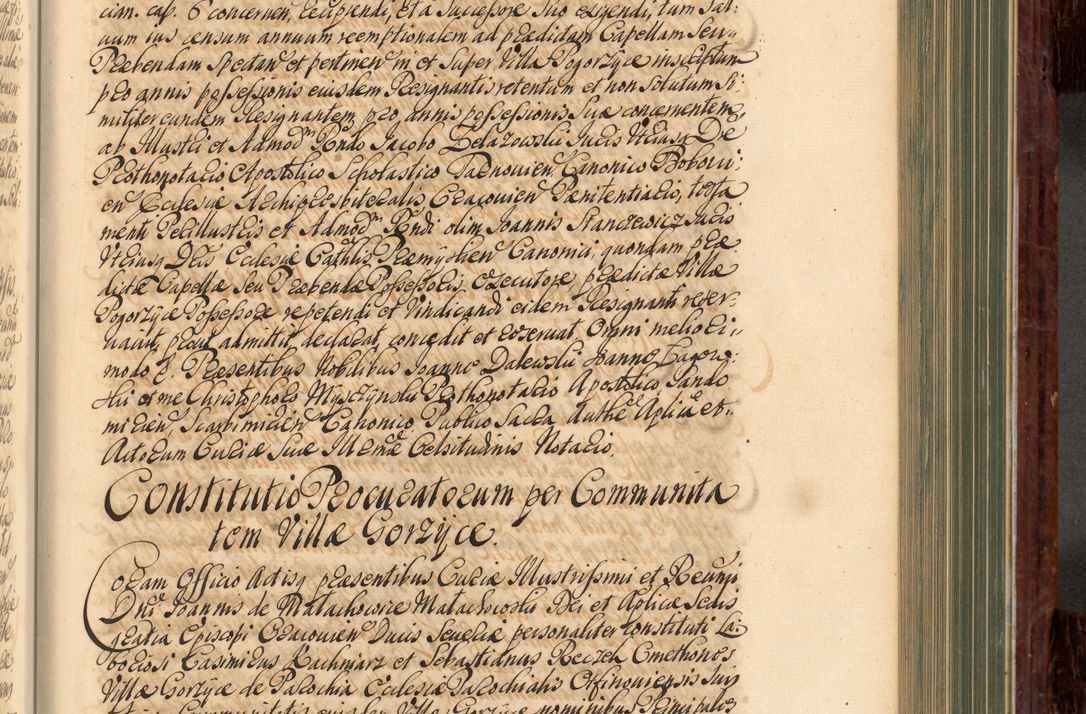 cian. cap. 6 concernen, excipiendi, et a Successore suo exigendi, tum Sal:
uum ius censum annuum reemptionalem ad praedictam Capellam Seu
Praebendam Spectan et pertinen in et Super Villa Pogorzyce inscriptum
pro annis possessionis eiusdem Resignantis retentum et non Solutum Si:
militer eundem Resignantem pro annis possessionis Suae concernentem,
ab Illustri et Admodm Rndo Iacobo Zelazowski Iuris Utriusq De
Prothonotario Apostolico Scholastico Tarnouien Canonico Boboui:
en Ecclesiae Archipresbiteralis Cracouien Paenitentiario, testa
menti Perillustris et Admodm Rndi olim Ioannis Stanczewicz Iuris
Utriusq Dris Ecclesiae Cathlis Praemyslien Canonici, quondam prae
dictae Capellae Seu Praebendae Possessoris, Executore, praedictae Villae
Pogorzyce Possessore repetendi et Vindicandi eidem Resignanti reser:
uauit, prout admittit, declarat, concedit et reseruat, Omni meliori
modo &. Praesentibus Nobilibus Ioanne Dalewski Ioanne Zagow:
ski et me Christophoro Mysczynski Prothonotario Apostolico Sando
mirien, Scarbimirien Canonico, Publico Sacra Authe Aplica et
Actorum Curiae Suae Illmae Celsitudinis Notario.
Constitutio Procuratorum per Communita
tem Villae Gorzyce.
Coram Officio Actisq praesentibus Curiae Illustrissimi et Reuñi
Dni Ioannis de Małachowice Małachowski Dei et Aplicae Sedis
gratia Episcopi Cracouien Ducis Seueriae personaliter constituti La:
boriosi Casimirus Kachniarz et Sebastianus Reczek Cmethones
Villae Gorzyce de Parochia Ecclesiae Parochialis Offinguiensis Suis
Communitatis eiusdem Villae Gorzyce nominibus Principales